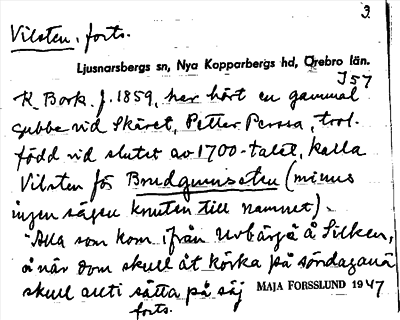 3.
Vilsten, forts.
Ljusnarsbergs sn, Nya Kopparbergs hd, Örebro län.
I57
K. Bork. f. 1859, har hört en gammal
gubbe vid Skäret, Petter Perssa, trol.
född vid slutet av 1700-talet, kalla
Vilsten för Brudgumsaten (minns
ingen sägen knuten till namnet).
"Alla som kom ifrån å Silken,
å när dom skull åt körka på söndagarna
skull alti sätta på säj
forts.
MAJA FORSSLUND 1947